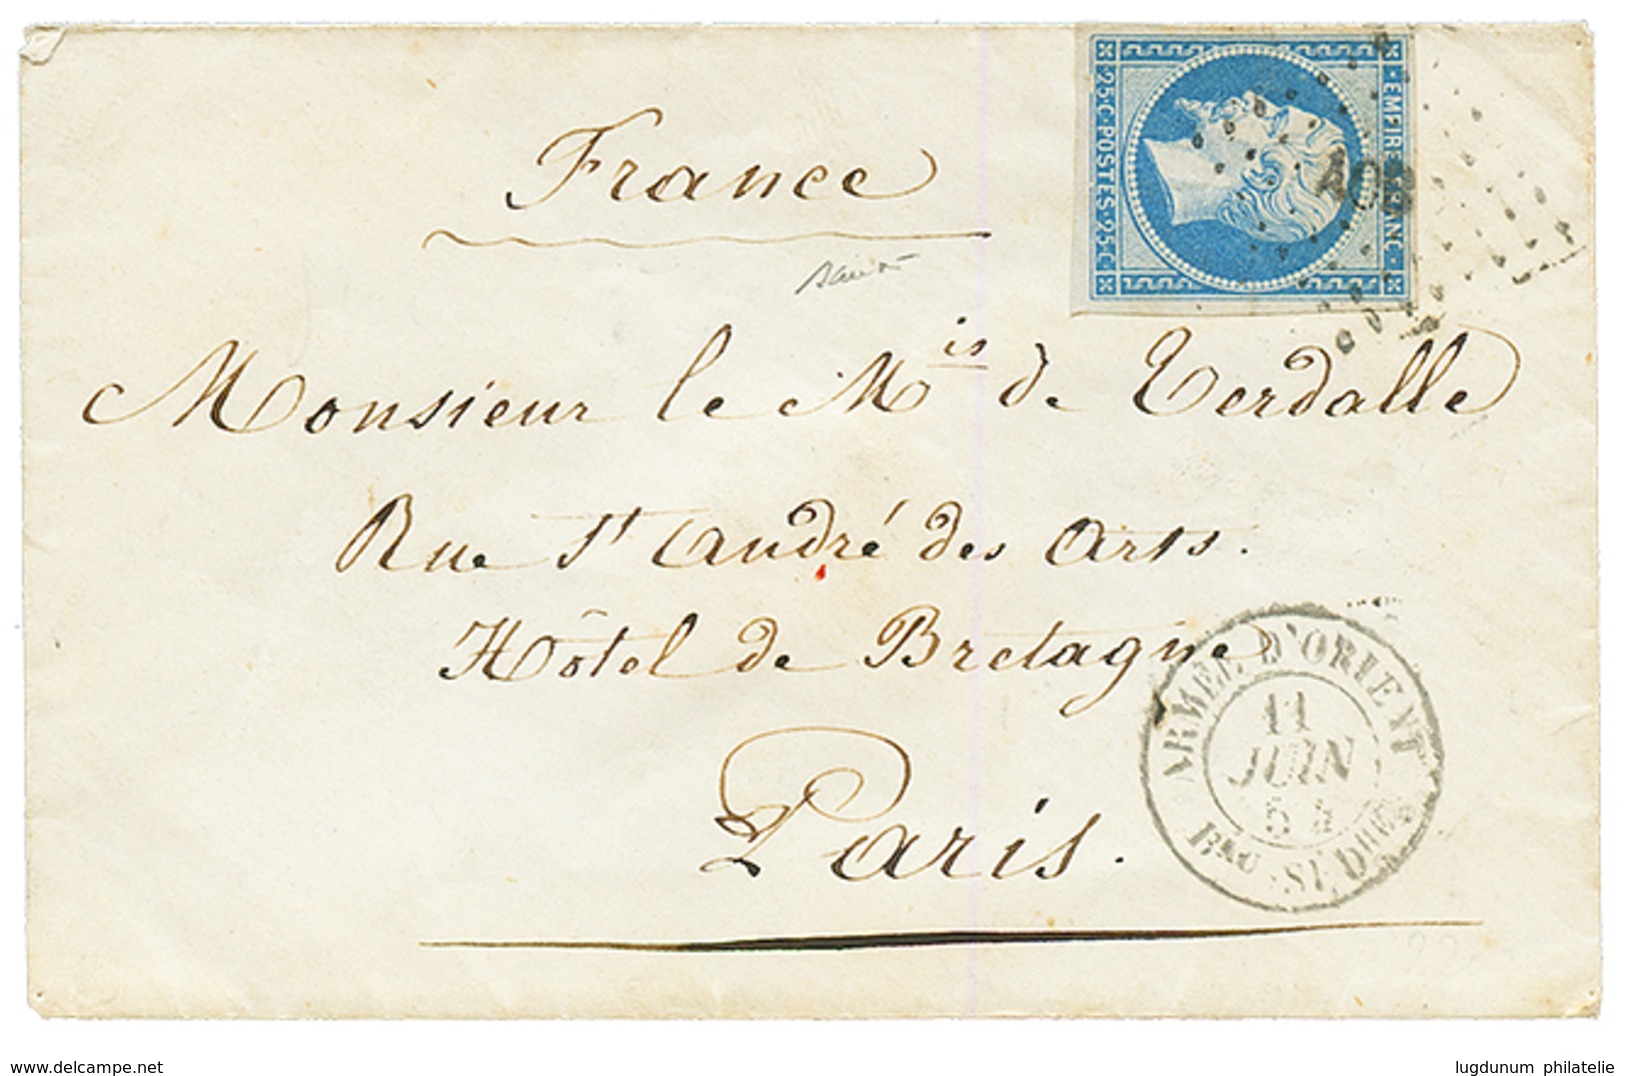 France
EMPIRE FRANC
25·C·POSTES·25·C
Monsieur le Mis de Verdalle
Rue St André des Arts.
Hôtel de Bretagne
Paris.
ARMÉE D'ORIENT
11
JUIN
54
www.delcampe.net
lugdunum philatelie